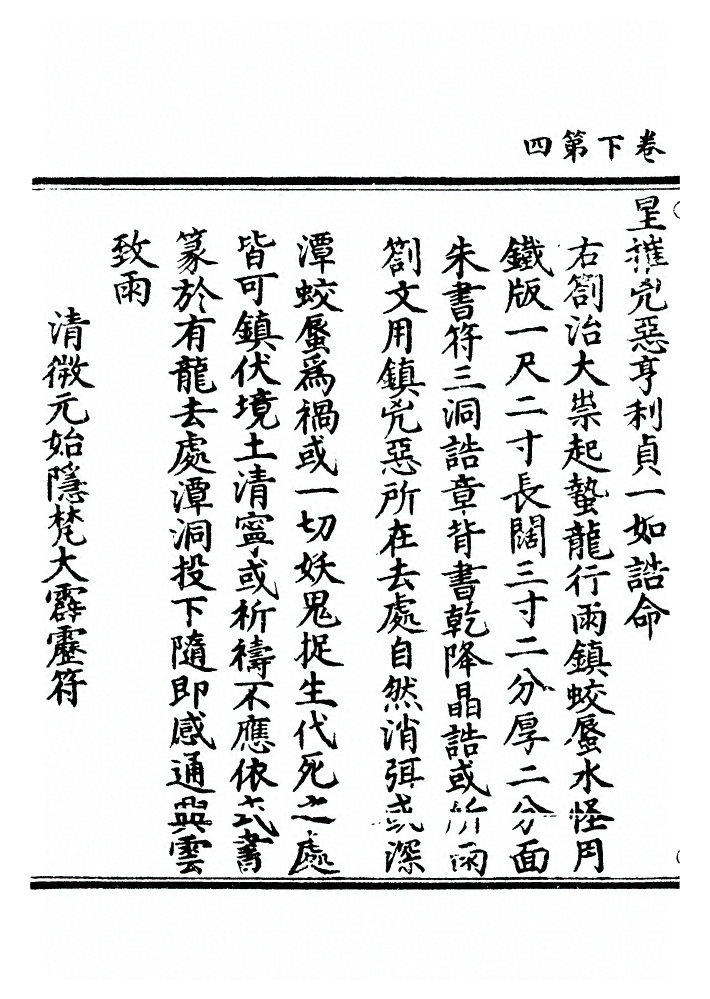 卷下第四
星摧兇惡亨利貞一如誥命
右劄治大祟起蟄龍行雨鎮蛟蜃水怪用
鐵版一尺二寸長闊三寸二分厚二分面
朱書符三洞誥章背書乾降晶誥或祈雨
劄文用鎮兇惡所在去處自然消弭或深
潭蛟蜃爲禍或一切妖鬼捉生代死之處
皆可鎮伏境土清寧或祈禱不應依式書
篆於有龍去處潭洞投下隨即感通興雲
致雨
清微元始隱梵大霹靂符